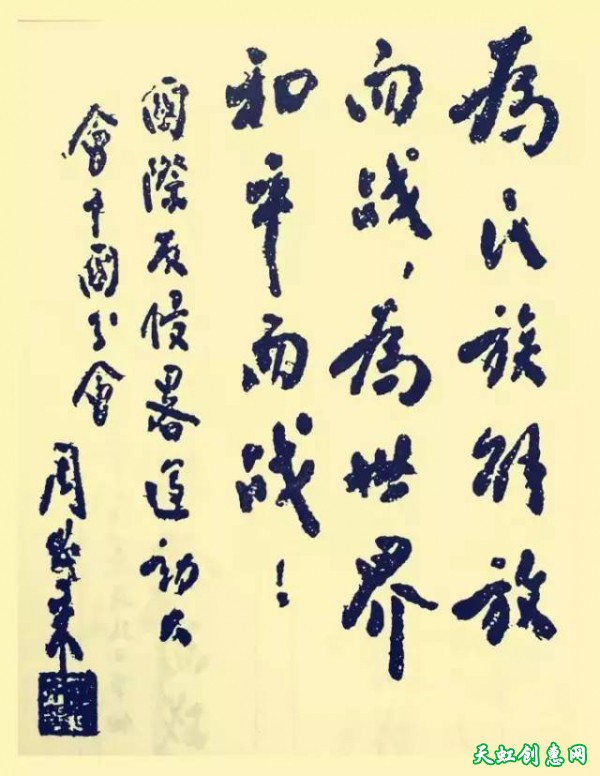 為民族解放
而战，為世界
和平而战！
國際反侵畧運動大
會中國分會
周恩来
天虹创惠网